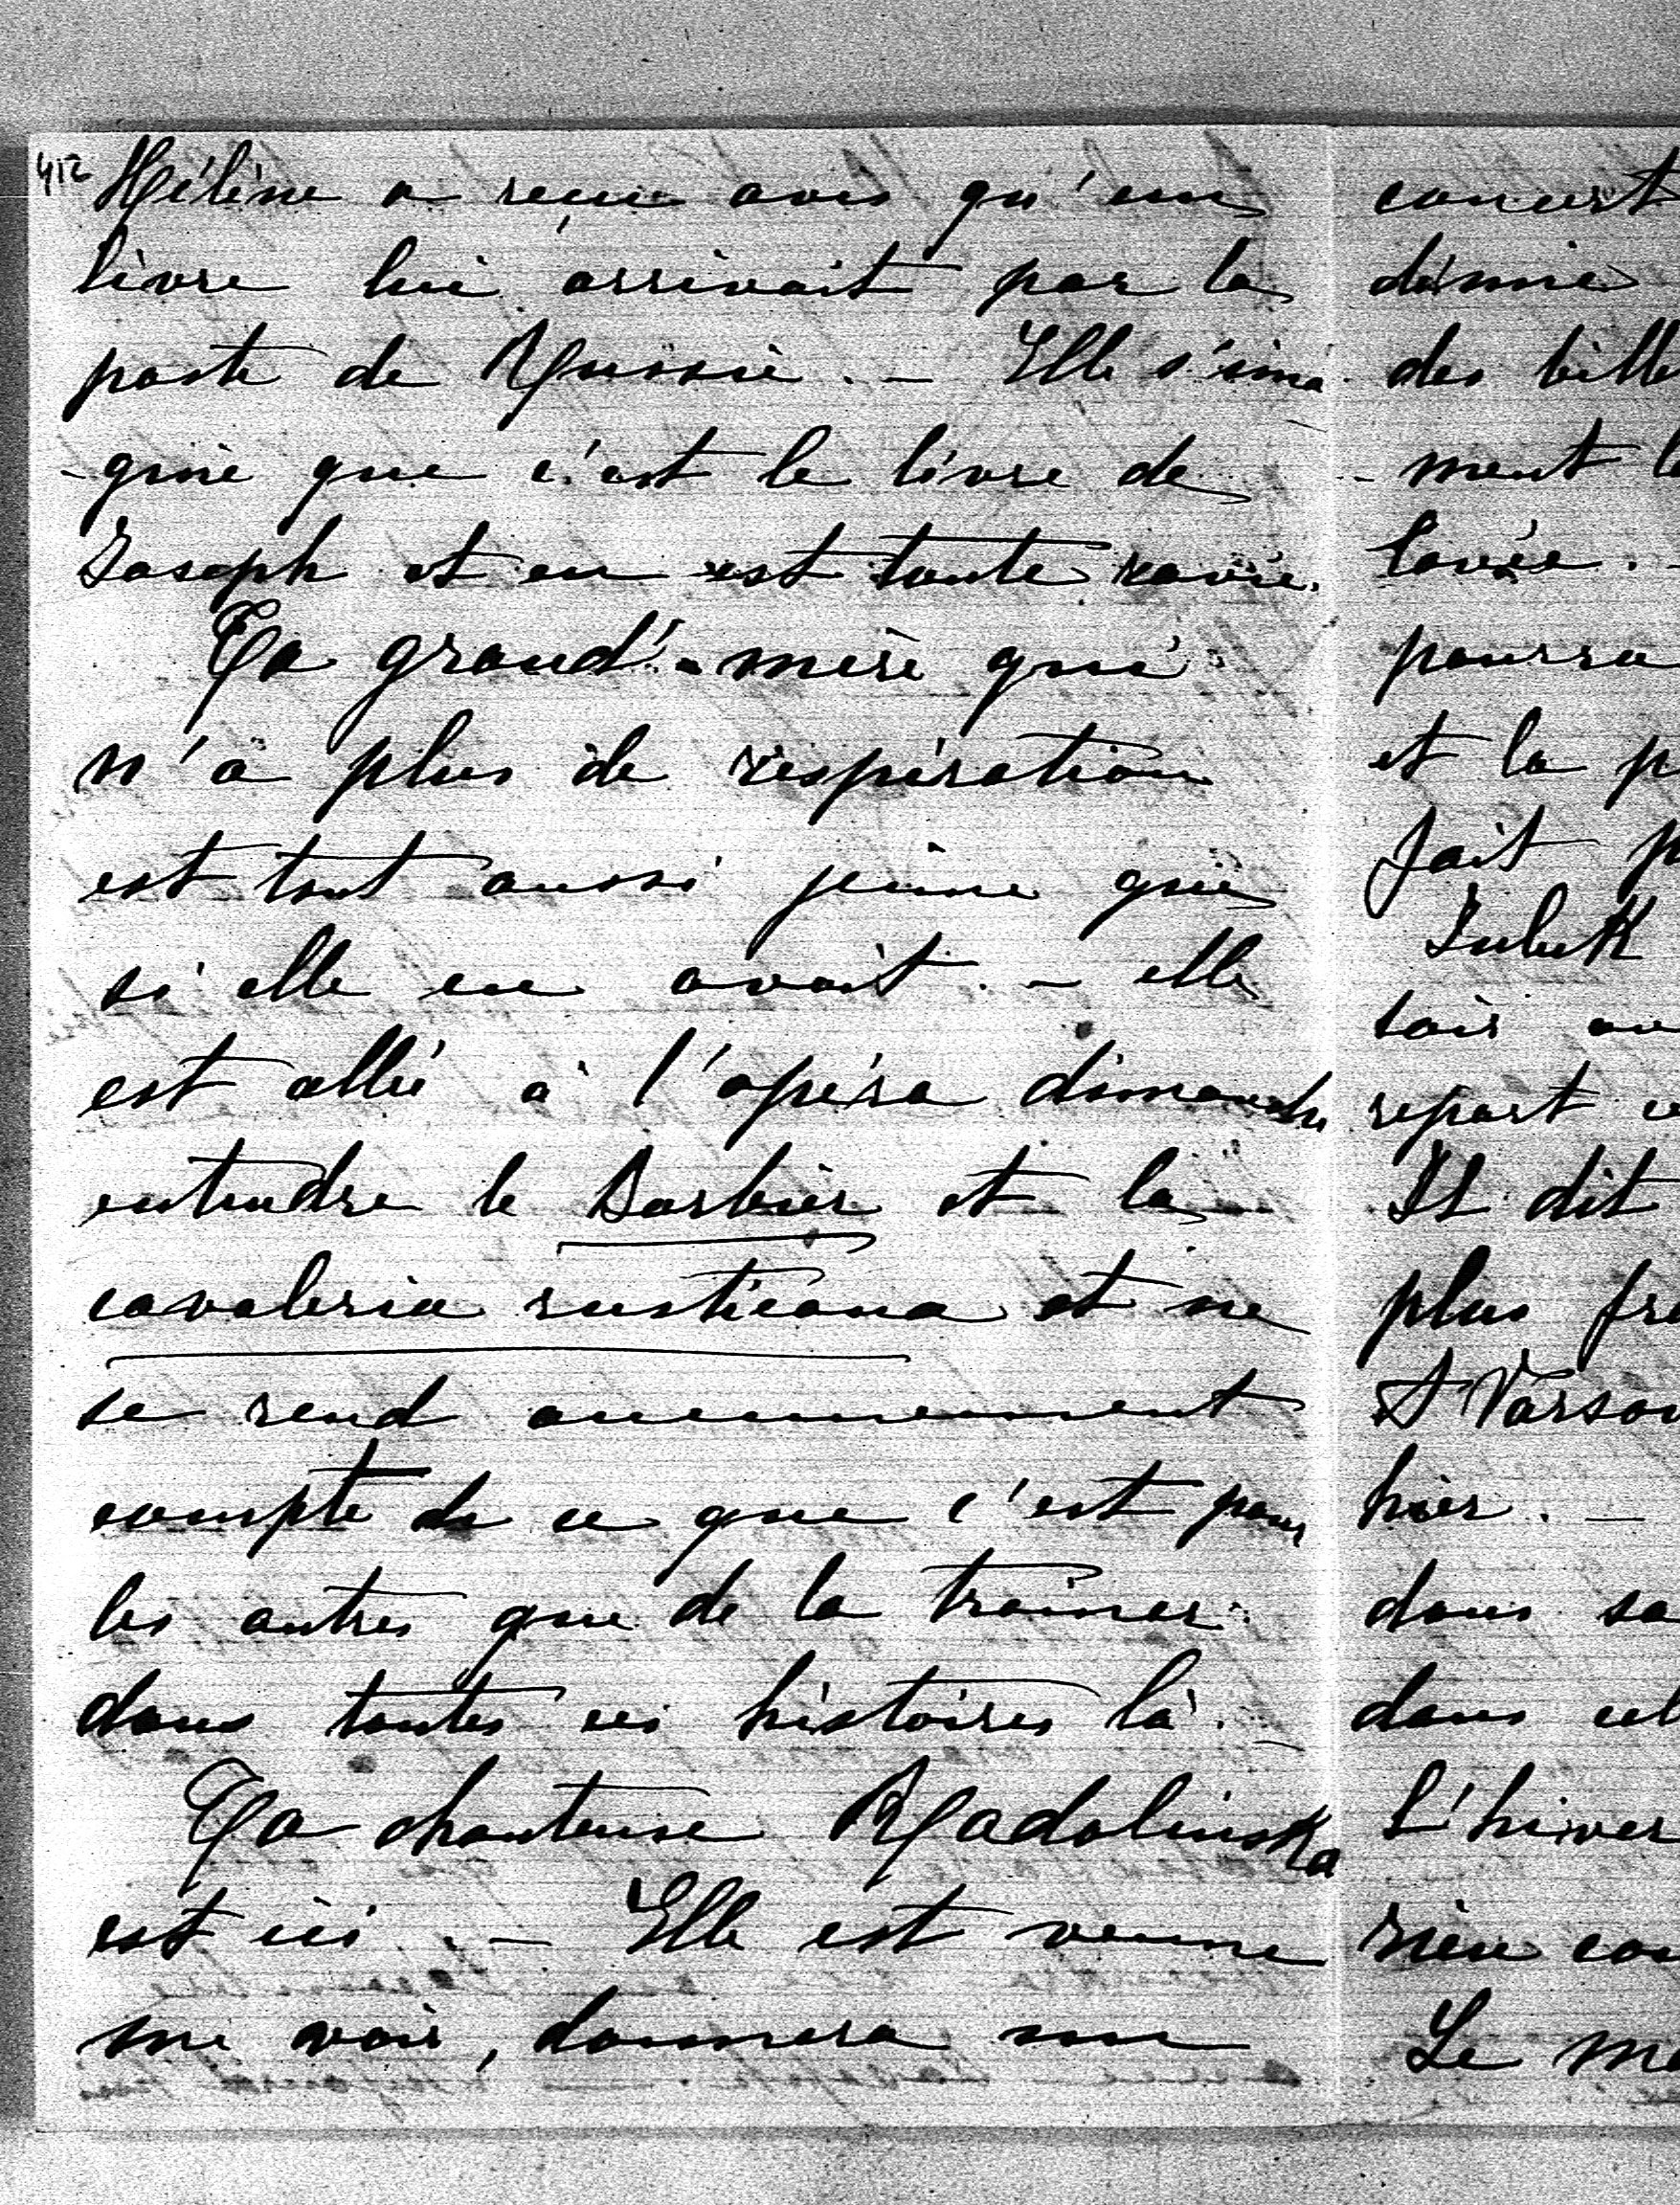 412
Hélène a reçu avis qu'un
livre lui arrivait par la
poste de Russie. — Elle s'ima
-gine que c'est le livre de
Joseph et en est toute ravie.
Ta grand'-mère qui
n'a plus de respiration
est tout aussi jeune que
si elle en avait. — elle
est allée à l'opéra dimanche
entendre le Barbier et la
cavaleria rusticana et ne
se rend aucunement
compte de ce que c'est pour
les autres que de la trainer
dans toutes ces histoires là.
Ta chanteuse Radolinska
est ici. — Elle est venue
me voir, donnera un
concert
donné
des bille
-ment l
lovée. -
pourra
et la p
fait p
soir au
repart ce
Il dit
plus fr
A Varsov
hier. —
dans sa
dans cel
L'hiver
rien con
Le ma